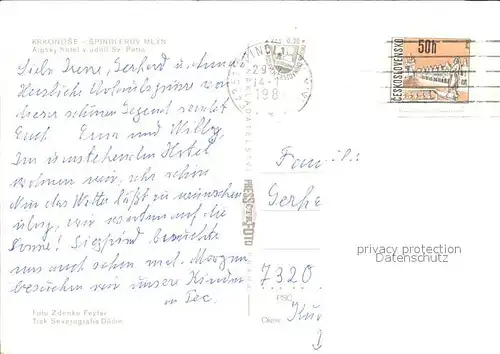 KRKONOŠE - ŠPINDLERŮV MLÝN
Alpský hotel v údolí Sv. Petra
Liebe Irene, Gerhard u.
Herzliche Urlaubsgrüsse von
dieser schönen Gegend sendet
Euch Erna und Willy
Im umstehenden Hotel
wohnen wir, sehr schön
Nur das Wetter läßt zu wünschen
übrig, wir warten auf die
Sonne! Siegfried besuchte
uns auch schon mal. Morgen
besuchen wir unsere Kinder
in Tec.
Foto Zdenko Feyfar
Tisk Severografia Děčín
PRESSFOTO
ČESKOSLOVENSKO
50h
Fam
Gerha
7320
PSČ
Okres
privacy protection
Datenschutz